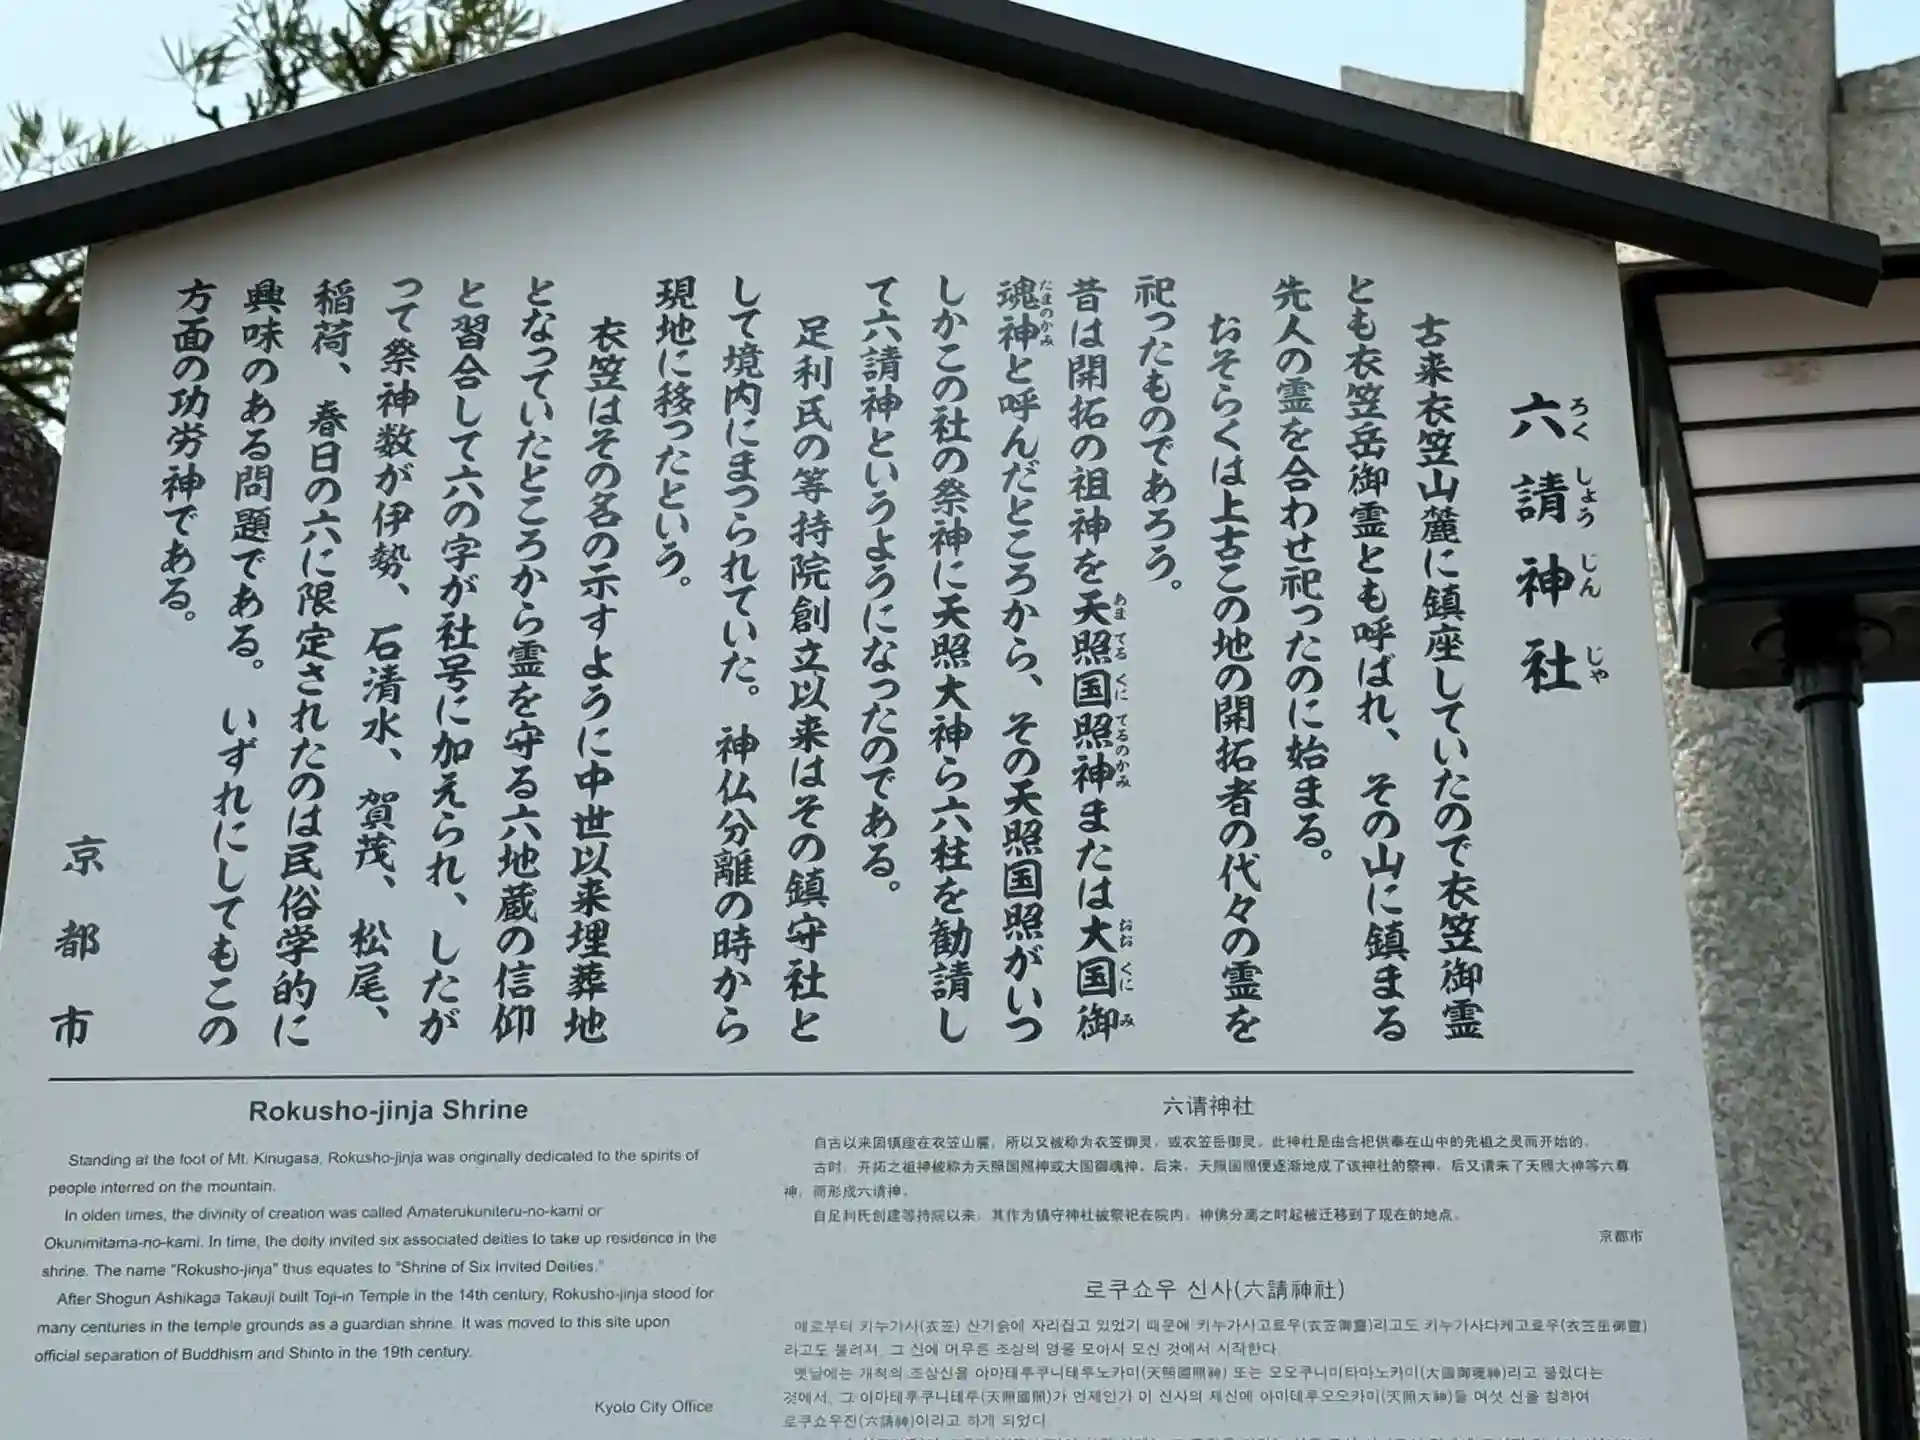 六請神社
ろくしょうじんじゃ
古来衣笠山麓に鎮座していたので衣笠御霊
とも衣笠岳御霊とも呼ばれ、その山に鎮まる
先人の霊を合わせ祀ったのに始まる。
おそらくは上古この地の開拓者の代々の霊を
祀ったものであろう。
昔は開拓の祖神を天照国照神または大国御
あまてるくにてるのかみ おおくにみ
魂神と呼んだところから、その天照国照がいつ
たまのかみ
しかこの社の祭神に天照大神ら六柱を勧請し
て六請神というようになったのである。
足利氏の等持院創立以来はその鎮守社と
して境内にまつられていた。神仏分離の時から
現地に移ったという。
衣笠はその名の示すように中世以来埋葬地
となっていたところから霊を守る六地蔵の信仰
と習合して六の字が社号に加えられ、したが
って祭神数が伊勢、石清水、賀茂、松尾、
稲荷、春日の六に限定されたのは民俗学的に
興味のある問題である。いずれにしてもこの
方面の功労神である。
京都市
Rokusho-jinja Shrine
Standing at the foot of Mt. Kinugasa, Rokusho-jinja was originally dedicated to the spirits of
people interred on the mountain.
In olden times, the divinity of creation was called Amaterukuniteru-no-kami or
Okunimitama-no-kami. In time, the deity invited six associated deities to take up residence in the
shrine. The name "Rokusho-jinja" thus equates to "Shrine of Six Invited Deities."
After Shogun Ashikaga Takauji built Toji-in Temple in the 14th century, Rokusho-jinja stood for
many centuries in the temple grounds as a guardian shrine. It was moved to this site upon
official separation of Buddhism and Shinto in the 19th century.
Kyoto City Office
六请神社
自古以来因镇座在衣笠山麓，所以又被称为衣笠御灵，或衣笠岳御灵。此神社是由合祀供奉在山中的先祖之灵而开始的。
古时，开拓之祖神被称为天照国照神或大国御魂神。后来，天照国照便逐渐地成了该神社的祭神，后又请来了天照大神等六尊
神，而形成六请神。
自足利氏创建等持院以来，其作为镇守神社被祭祀在院内，神佛分离之时起被迁移到了现在的地点。
京都市
로쿠쇼우 신사(六請神社)
예로부터 키누가사(衣笠) 산기슭에 자리잡고 있었기 때문에 키누가사고료우(衣笠御靈)리고도 키누가사다케고료우(衣笠岳御靈)
라고도 불려져, 그 신에 머무른 조상의 영을 모아서 모신 것에서 시작한다.
옛날에는 개척의 조상신을 아마테루쿠니테루노카미(天照國照神) 또는 오오쿠니미타마노카미(大國御魂神)리고 불렀다는
것에서, 그 아마테루쿠니테루(天照國照)가 언제인가 이 신사의 제신에 아마테루오오카미(天照大神)들 여섯 신을 청하여
로쿠쇼우진(六請神)이라고 하게 되었다.